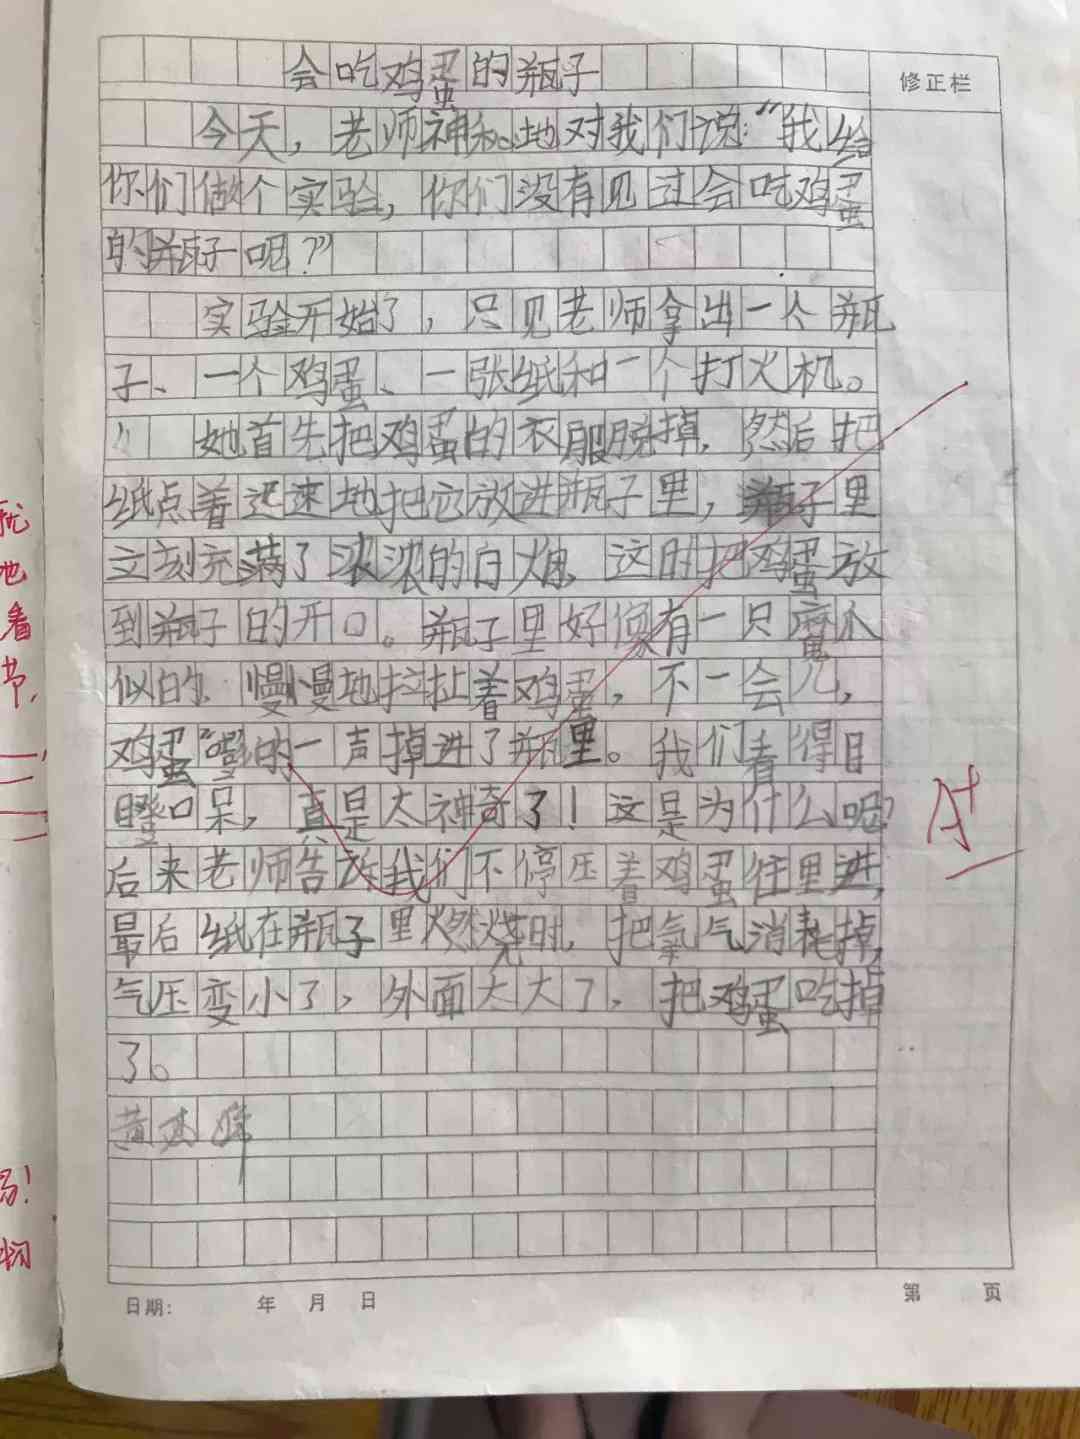 会吃鸡蛋的瓶子
修正栏
今天，老师神秘地对我们说："我给
你们做个实验，你们没有见过会吃鸡蛋
的瓶子呢？"
实验开始了，只见老师拿出一个瓶
子、一个鸡蛋、一张纸和一个打火机。
她首先把鸡蛋的衣服脱掉，然后把
纸点着迅速地把它放进瓶子里，瓶子里
立刻充满了浓浓的白烟，这时把鸡蛋放
到瓶子的开口。瓶子里好像有一只魔爪
似的，慢慢地拉扯着鸡蛋，不一会儿，
鸡蛋"嘭"的一声掉进了瓶里。我们看得目
瞪口呆，真是太神奇了！这是为什么呢？
后来老师告诉我们不停压着鸡蛋往里进，
最后纸在瓶子里燃烧时，把氧气消耗掉，
气压变小了，外面太大了，把鸡蛋吃掉
了。
黄
A+
扰
地
看
书，
吗！
日期： 年 月 日
第 页